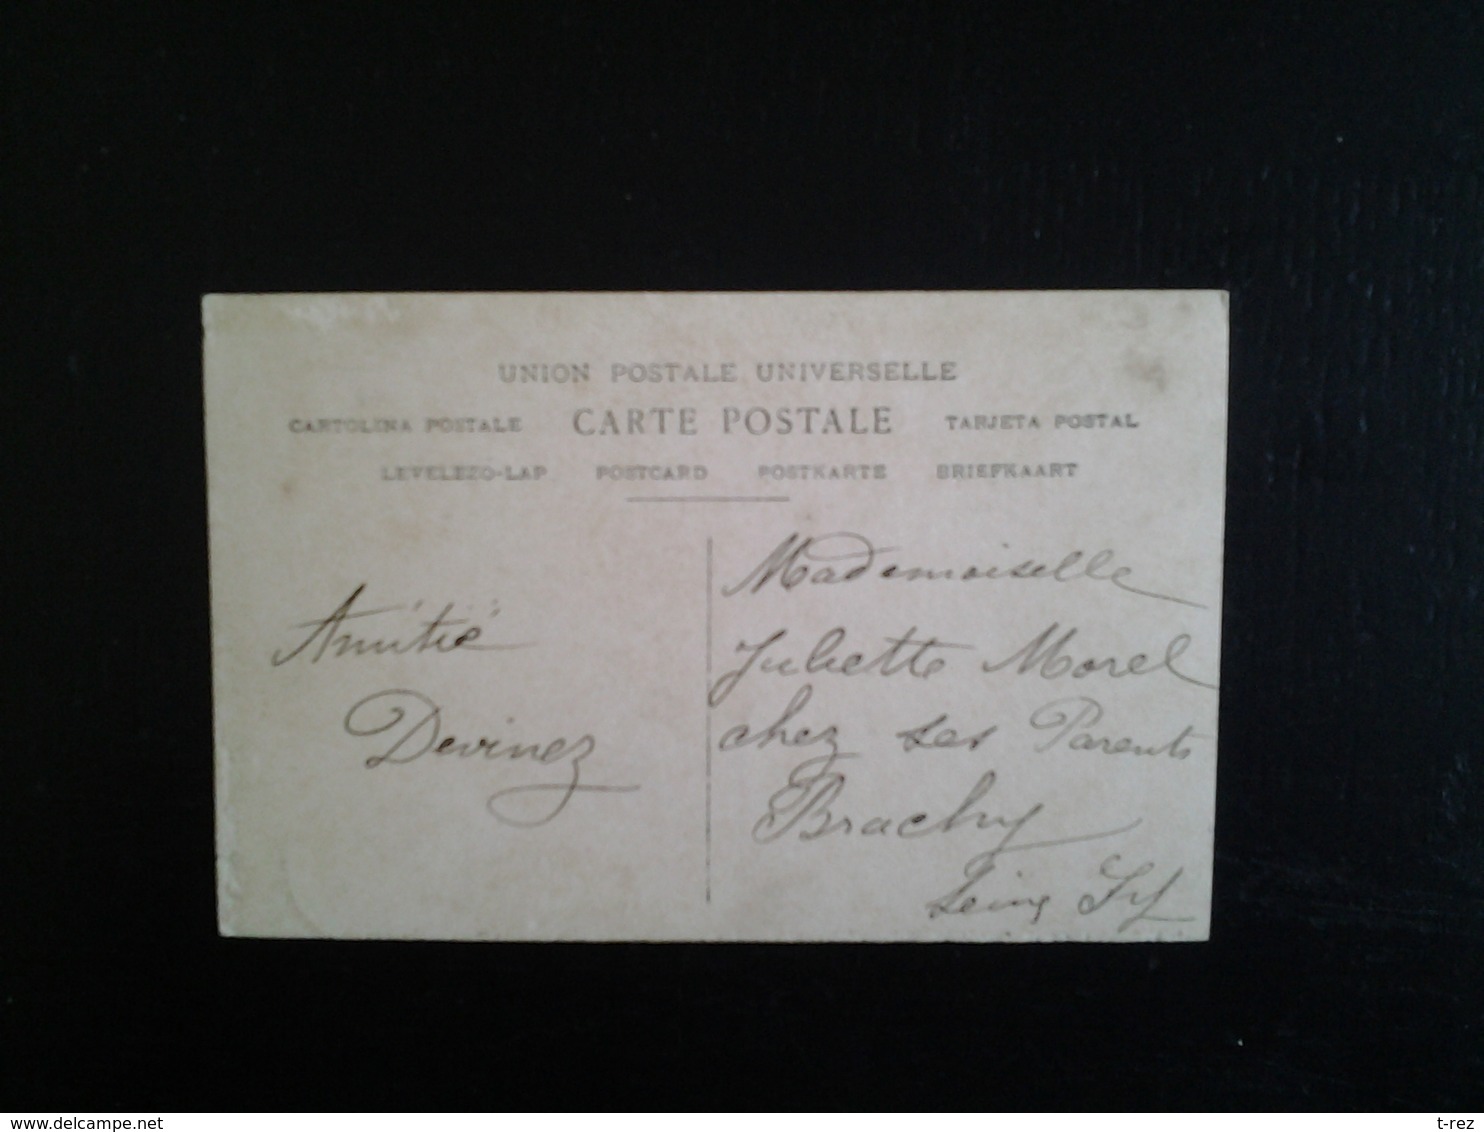 UNION POSTALE UNIVERSELLE
CARTOLINA POSTALE CARTE POSTALE TARJETA POSTAL
LEVELEZO-LAP POSTCARD POSTKARTE BRIEFKAART
Amitié
Devinez
Mademoiselle
Juliette Morel
chez ses Parents
Brachy
Seine Inf
www.delcampe.net
t-rez